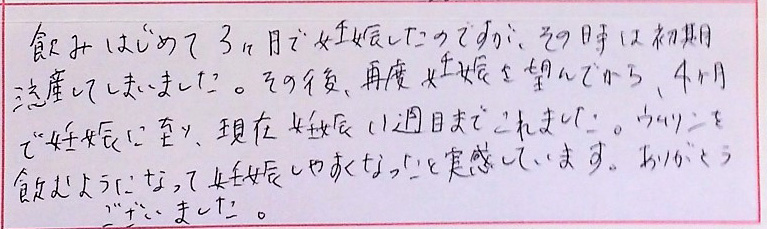 飲みはじめて3ヶ月で妊娠したのですが、その時は初期
流産してしまいました。その後、再度妊娠を望んでから、4ヶ月
で妊娠に至り、現在妊娠11週目までこれました。ウムリンを
飲むようになって妊娠しやすくなったと実感しています。ありがとう
ございました。